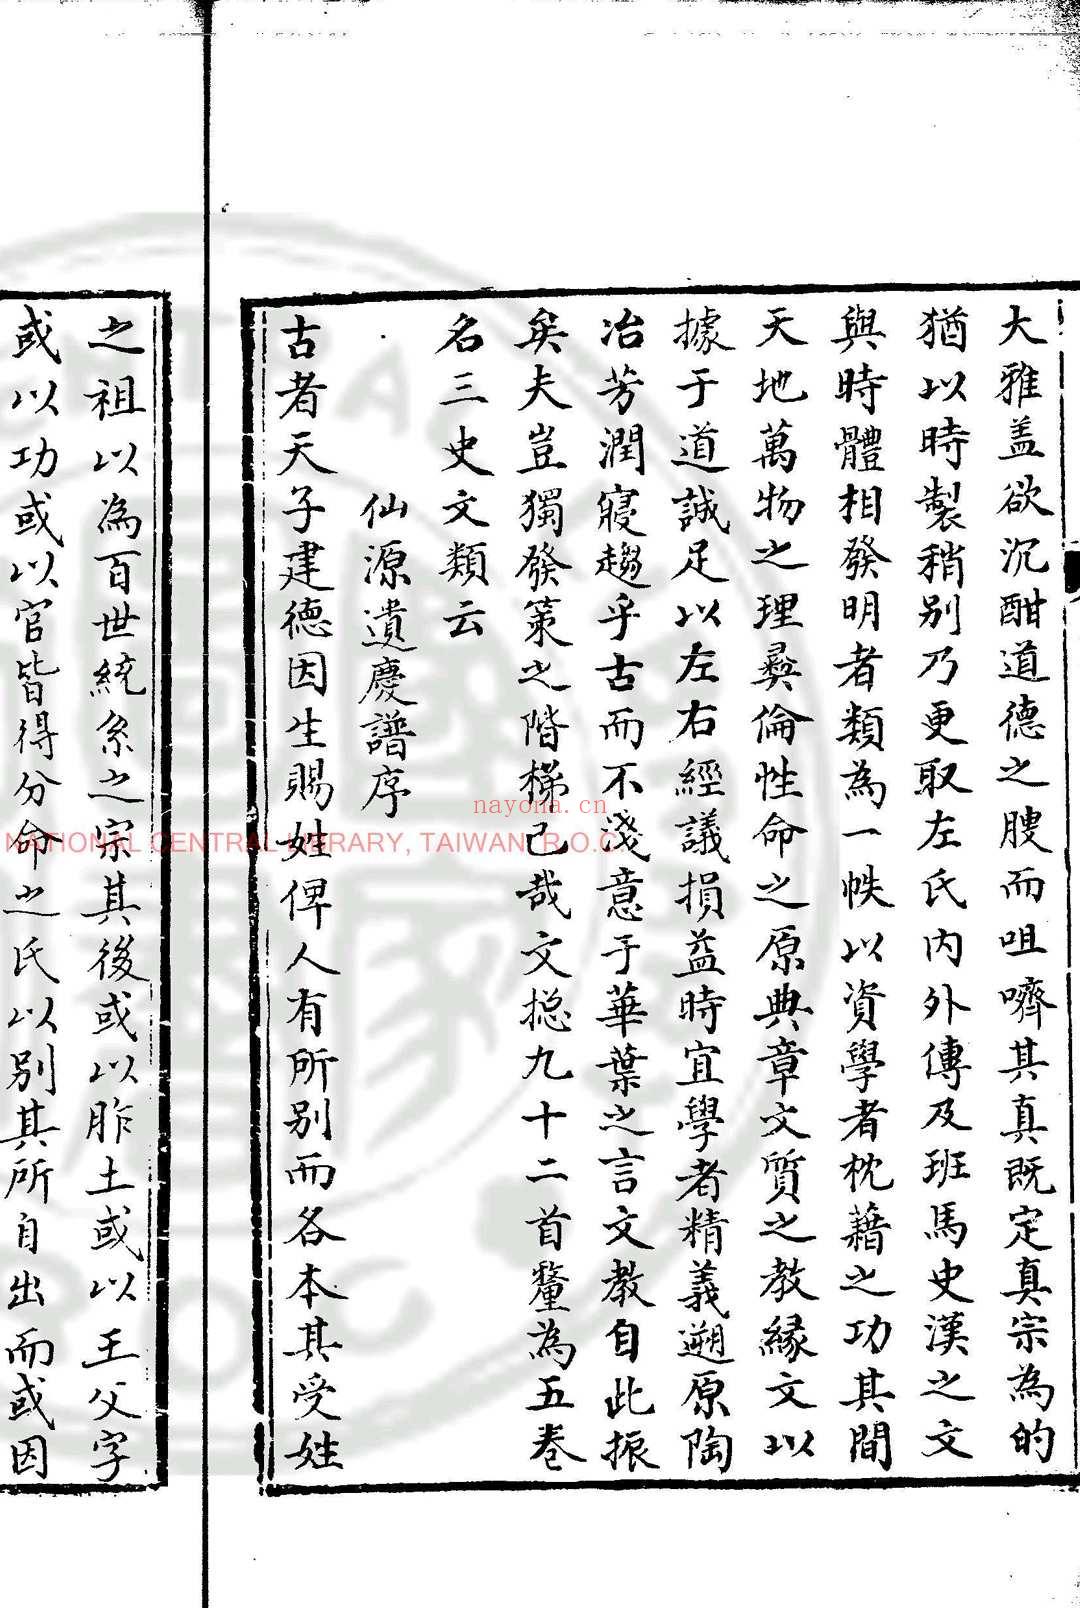 大雅盖欲沉酣道德之腴而咀嚌其真既定真宗為的
猶以時製稍别乃更取左氏内外傳及班馬史漢之文
與時體相發明者類為一帙以資學者枕藉之功其間
天地萬物之理彛倫性命之原典章文質之教縁文以
據于道誠足以左右經議損益時宜學者精義遡原陶
冶芳潤寢趨乎古而不淺意于華葉之言文教自此振
矣夫豈獨發策之階梯已哉文捴九十二首釐為五卷
名三史文類云
仙源遺慶譜序
古者天子建德因生賜姓俾人有所别而各本其受姓
之祖以為百世統系之宗其後或以胙土或以王父字
或以功或以官皆得分命之氏以别其所自出而或因
nayona.cn
NATIONAL CENTRAL LIBRARY, TAIWAN R.O.C